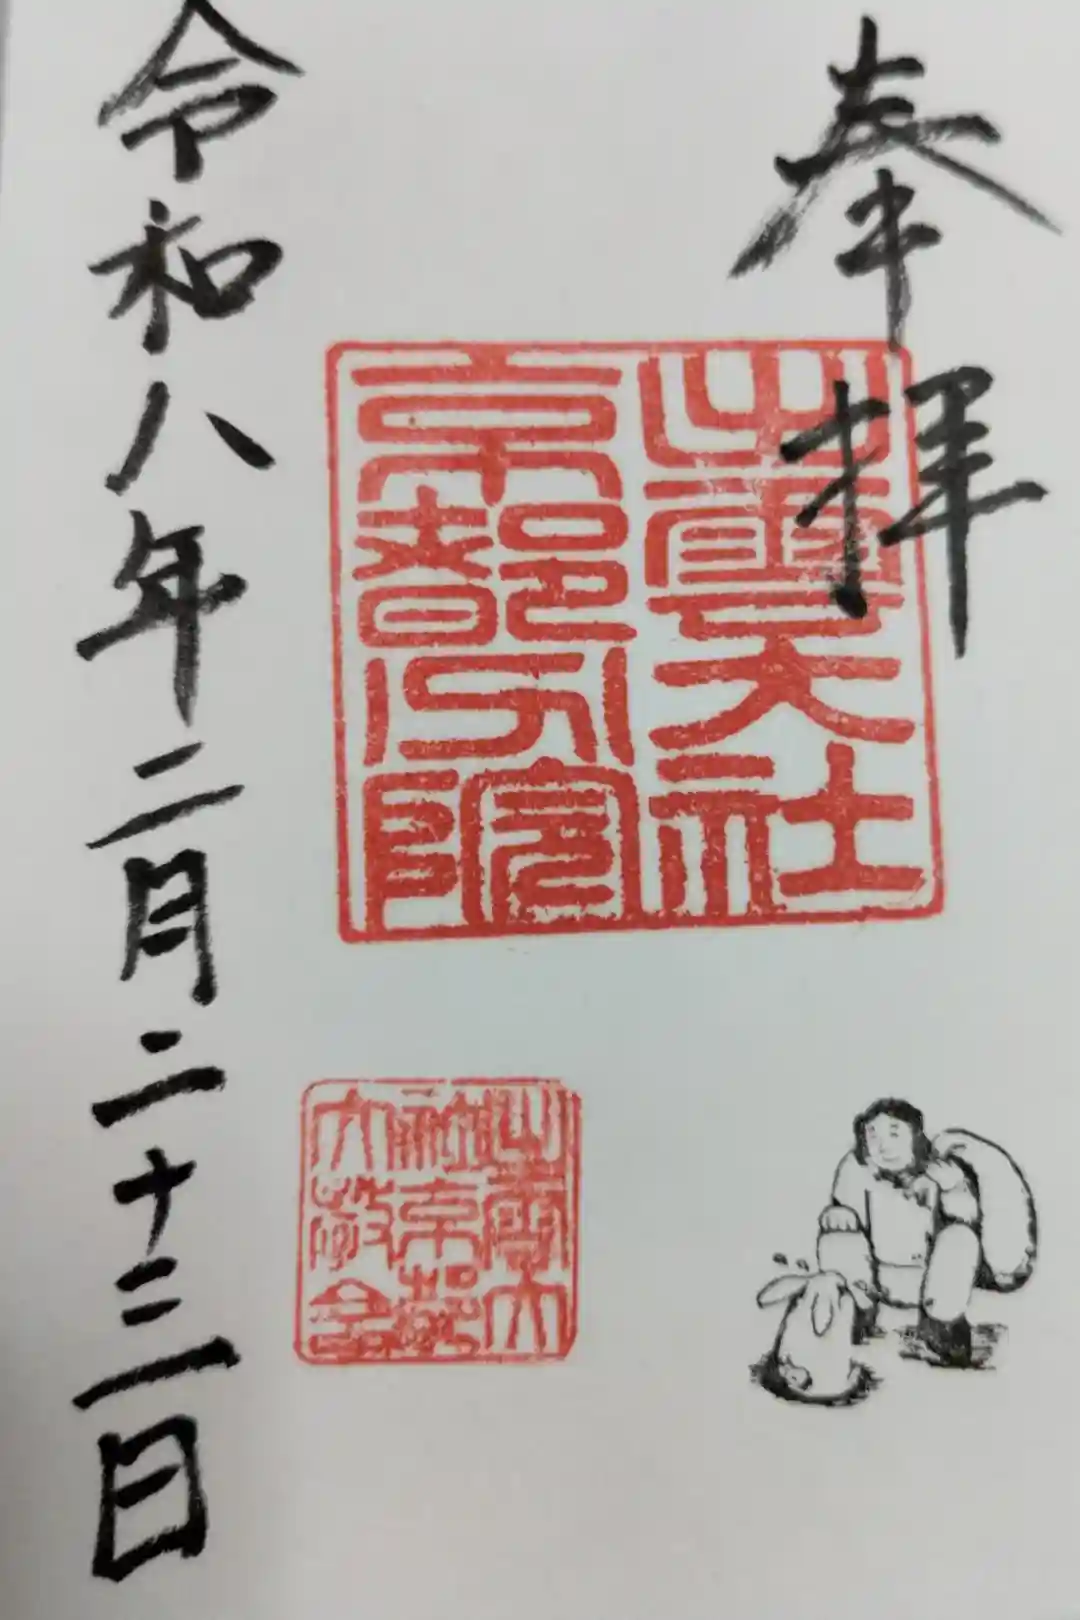 奉拝
出雲大社
京都分院
出雲大
社京都
大教会
令和八年二月二十三日